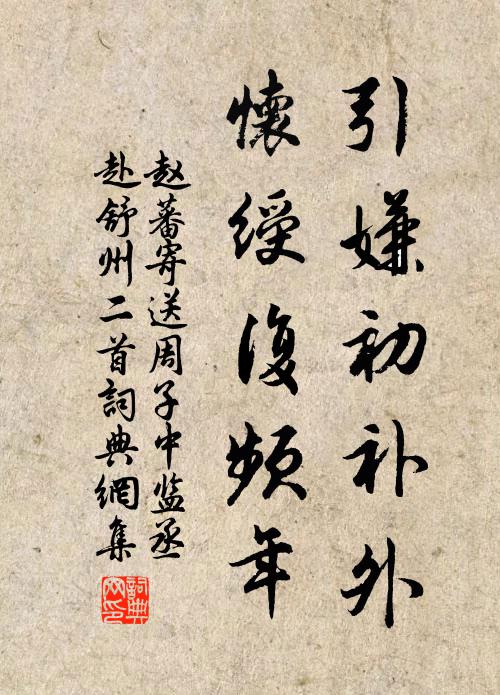 引嫌初补外
懷綬復頻年
赵蕃寄送周子中监丞
赴舒州二首詞典網集
詞典
网印